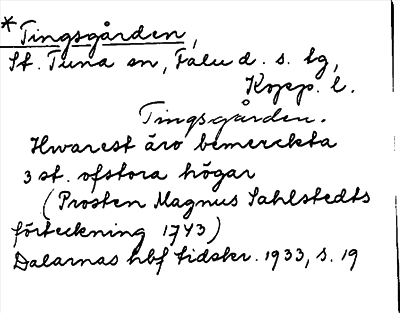 *Tingsgården,
St. Tuna sn, Falu d. s. lg,
Kopp. l.
Tingsgården.
Hwarest äro bemerckta
3 st. ofstora högar
(Prosten Magnus Sahlstedts
förteckning 1743)
Dalarnas hbf tidskr. 1933, s. 19